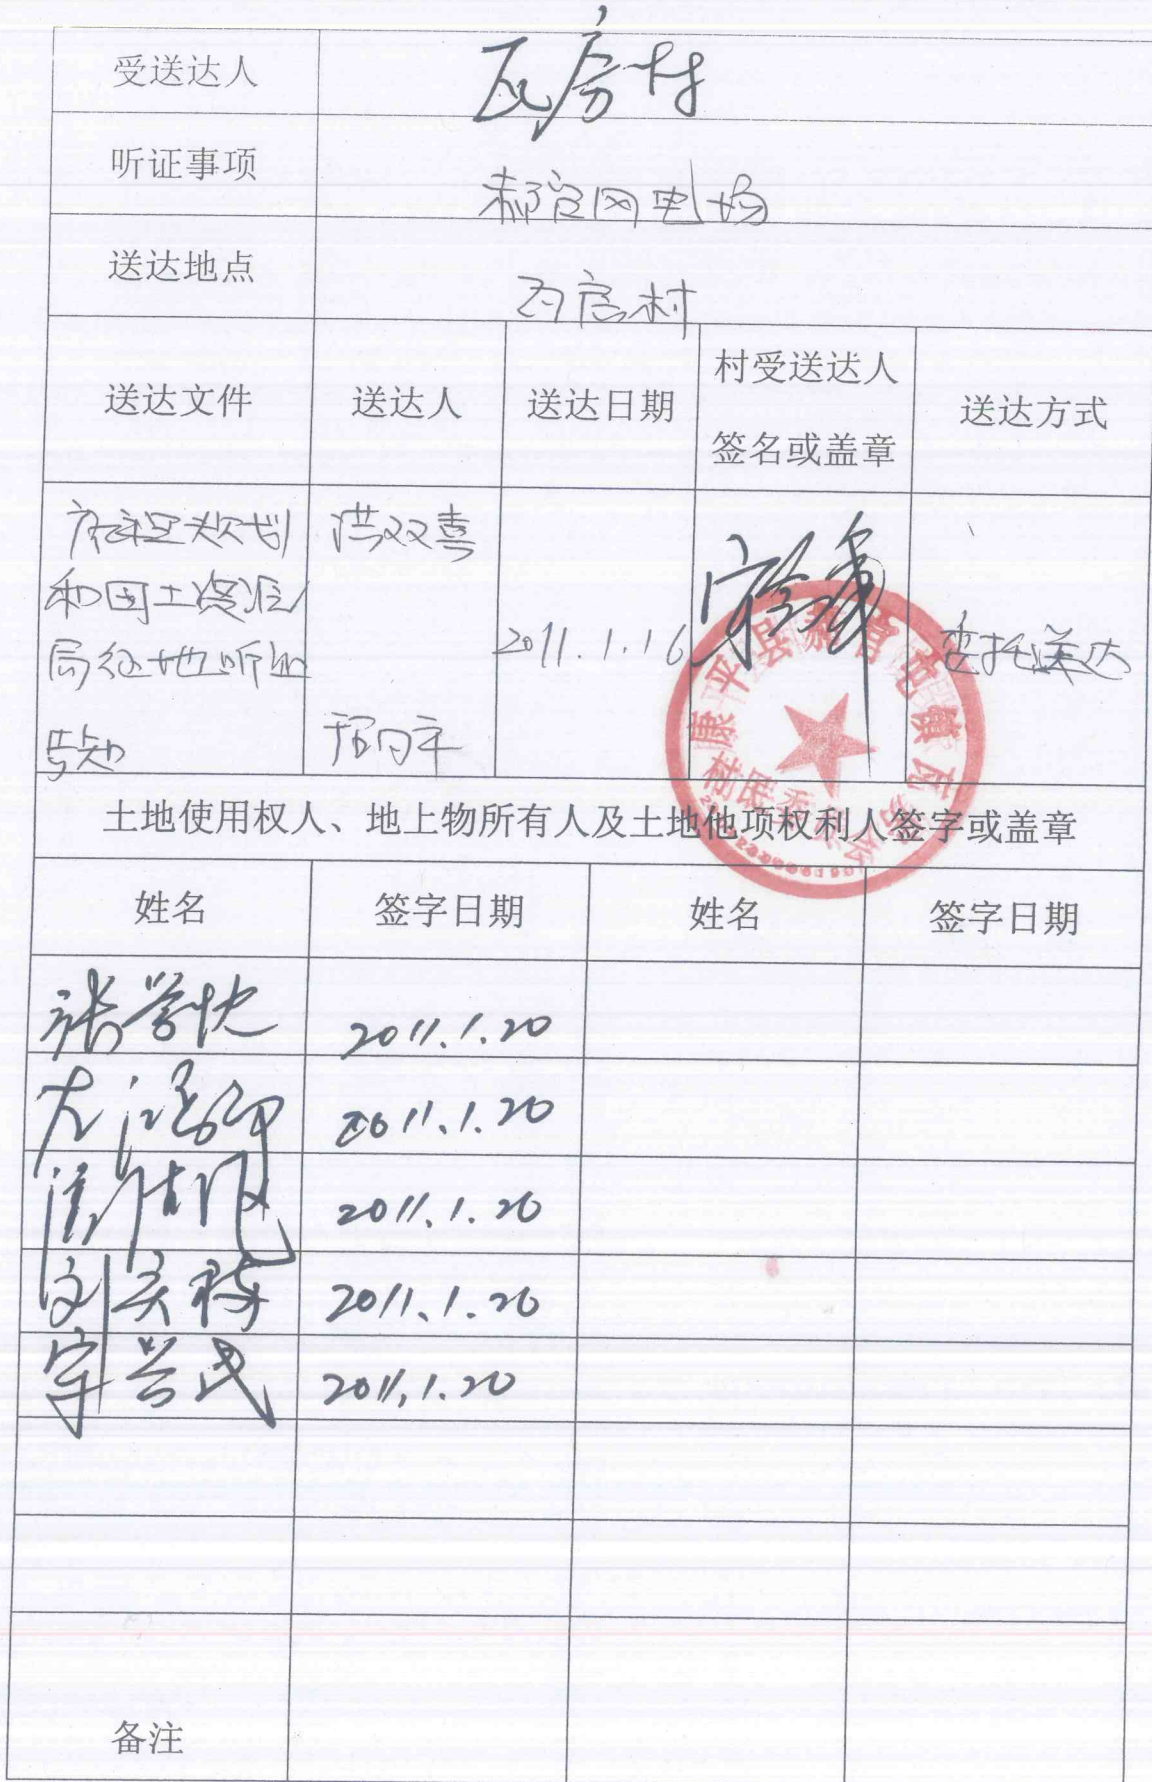 受送达人 瓦房村
听证事项 郝官风电场
送达地点 瓦房村
送达文件 送达人 送达日期 村受送达人 签名或盖章 送达方式
规划 洪双喜
和国土资源
局征地听证 2011.1.16 委托送达
告知
康平县郝官屯镇瓦房
村民委员会
土地使用权人、地上物所有人及土地他项权利人签字或盖章
姓名 签字日期 姓名 签字日期
张学忱 2011.1.20
2011.1.20
2011.1.20
2011.1.20
宋兴民 2011.1.20
备注